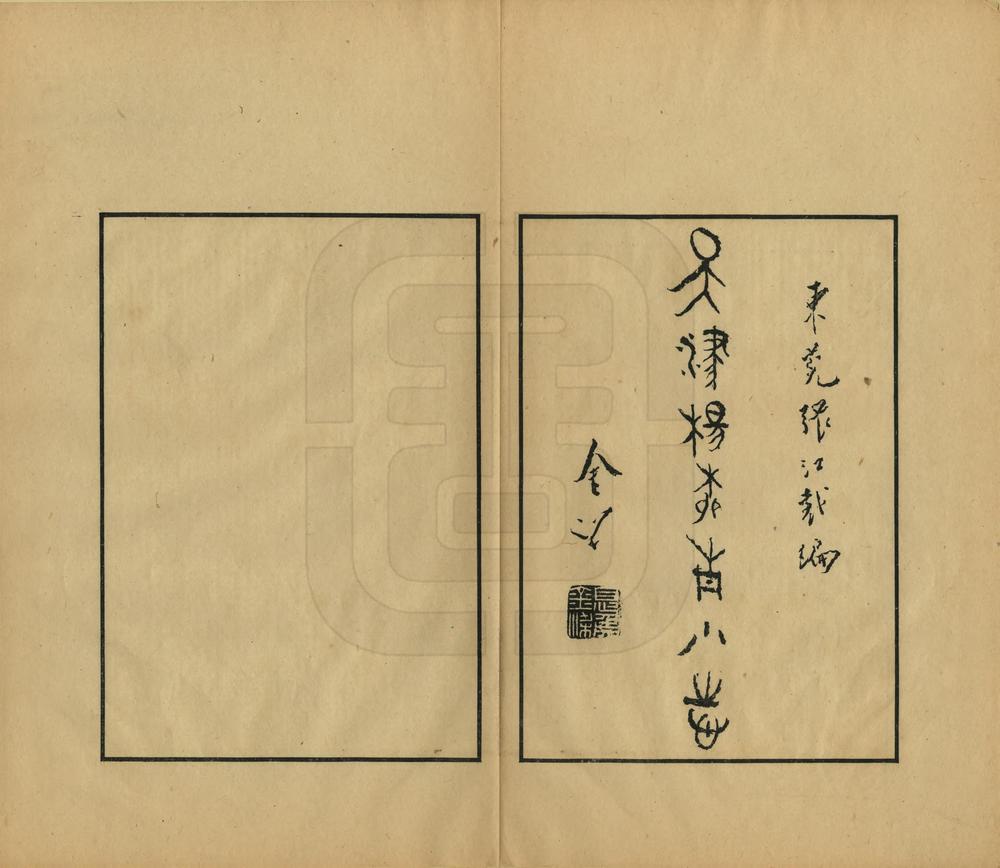 東莞張江裁編
天津楊柳青小志
金梁